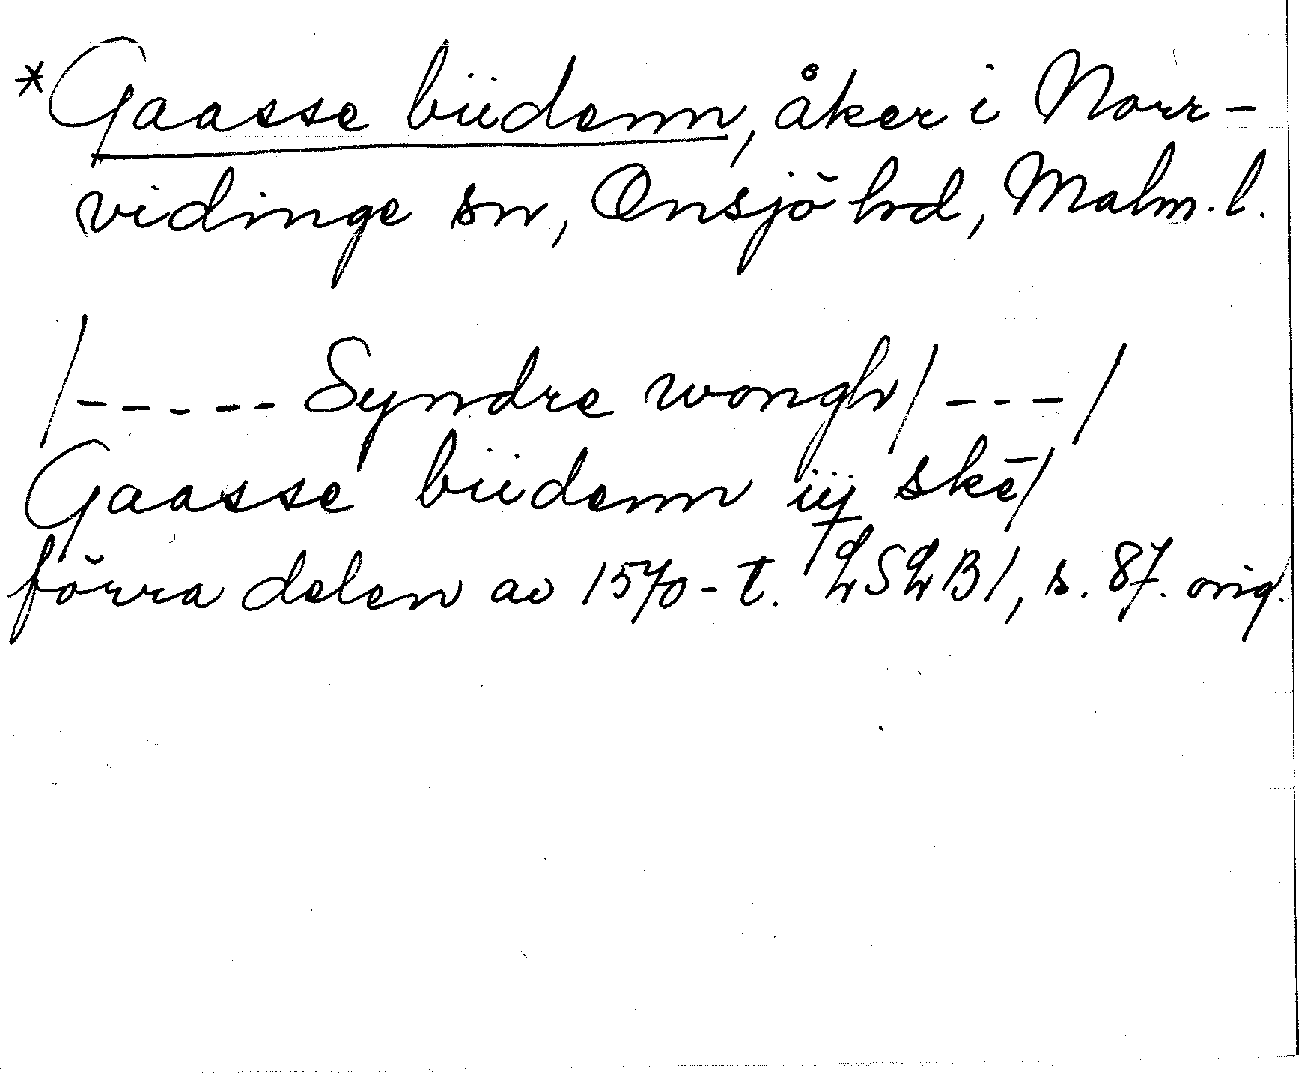 *Gaasse biidenn, åker i Norr-
vidinge sn, Onsjö hd, Malm. l.
/----- Syndre wongh/ ---/
Gaasse biidenn iij skē/
förra delen av 1570-t. LSLB1, s. 87. orig.